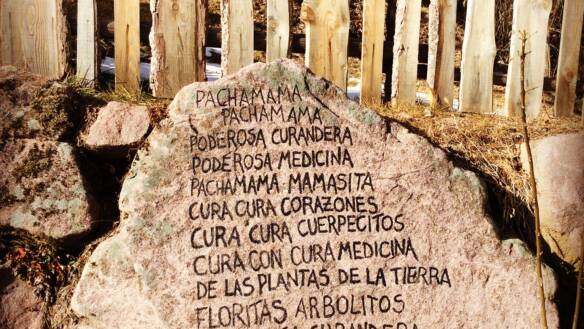 PACHAMAMA
PACHAMAMA
PODEROSA CURANDERA
PODEROSA MEDICINA
PACHAMAMA MAMASITA
CURA CURA CORAZONES
CURA CURA CUERPECITOS
CURA CON CURA MEDICINA
DE LAS PLANTAS DE LA TIERRA
FLORITAS ARBOLITOS
CURANDERA